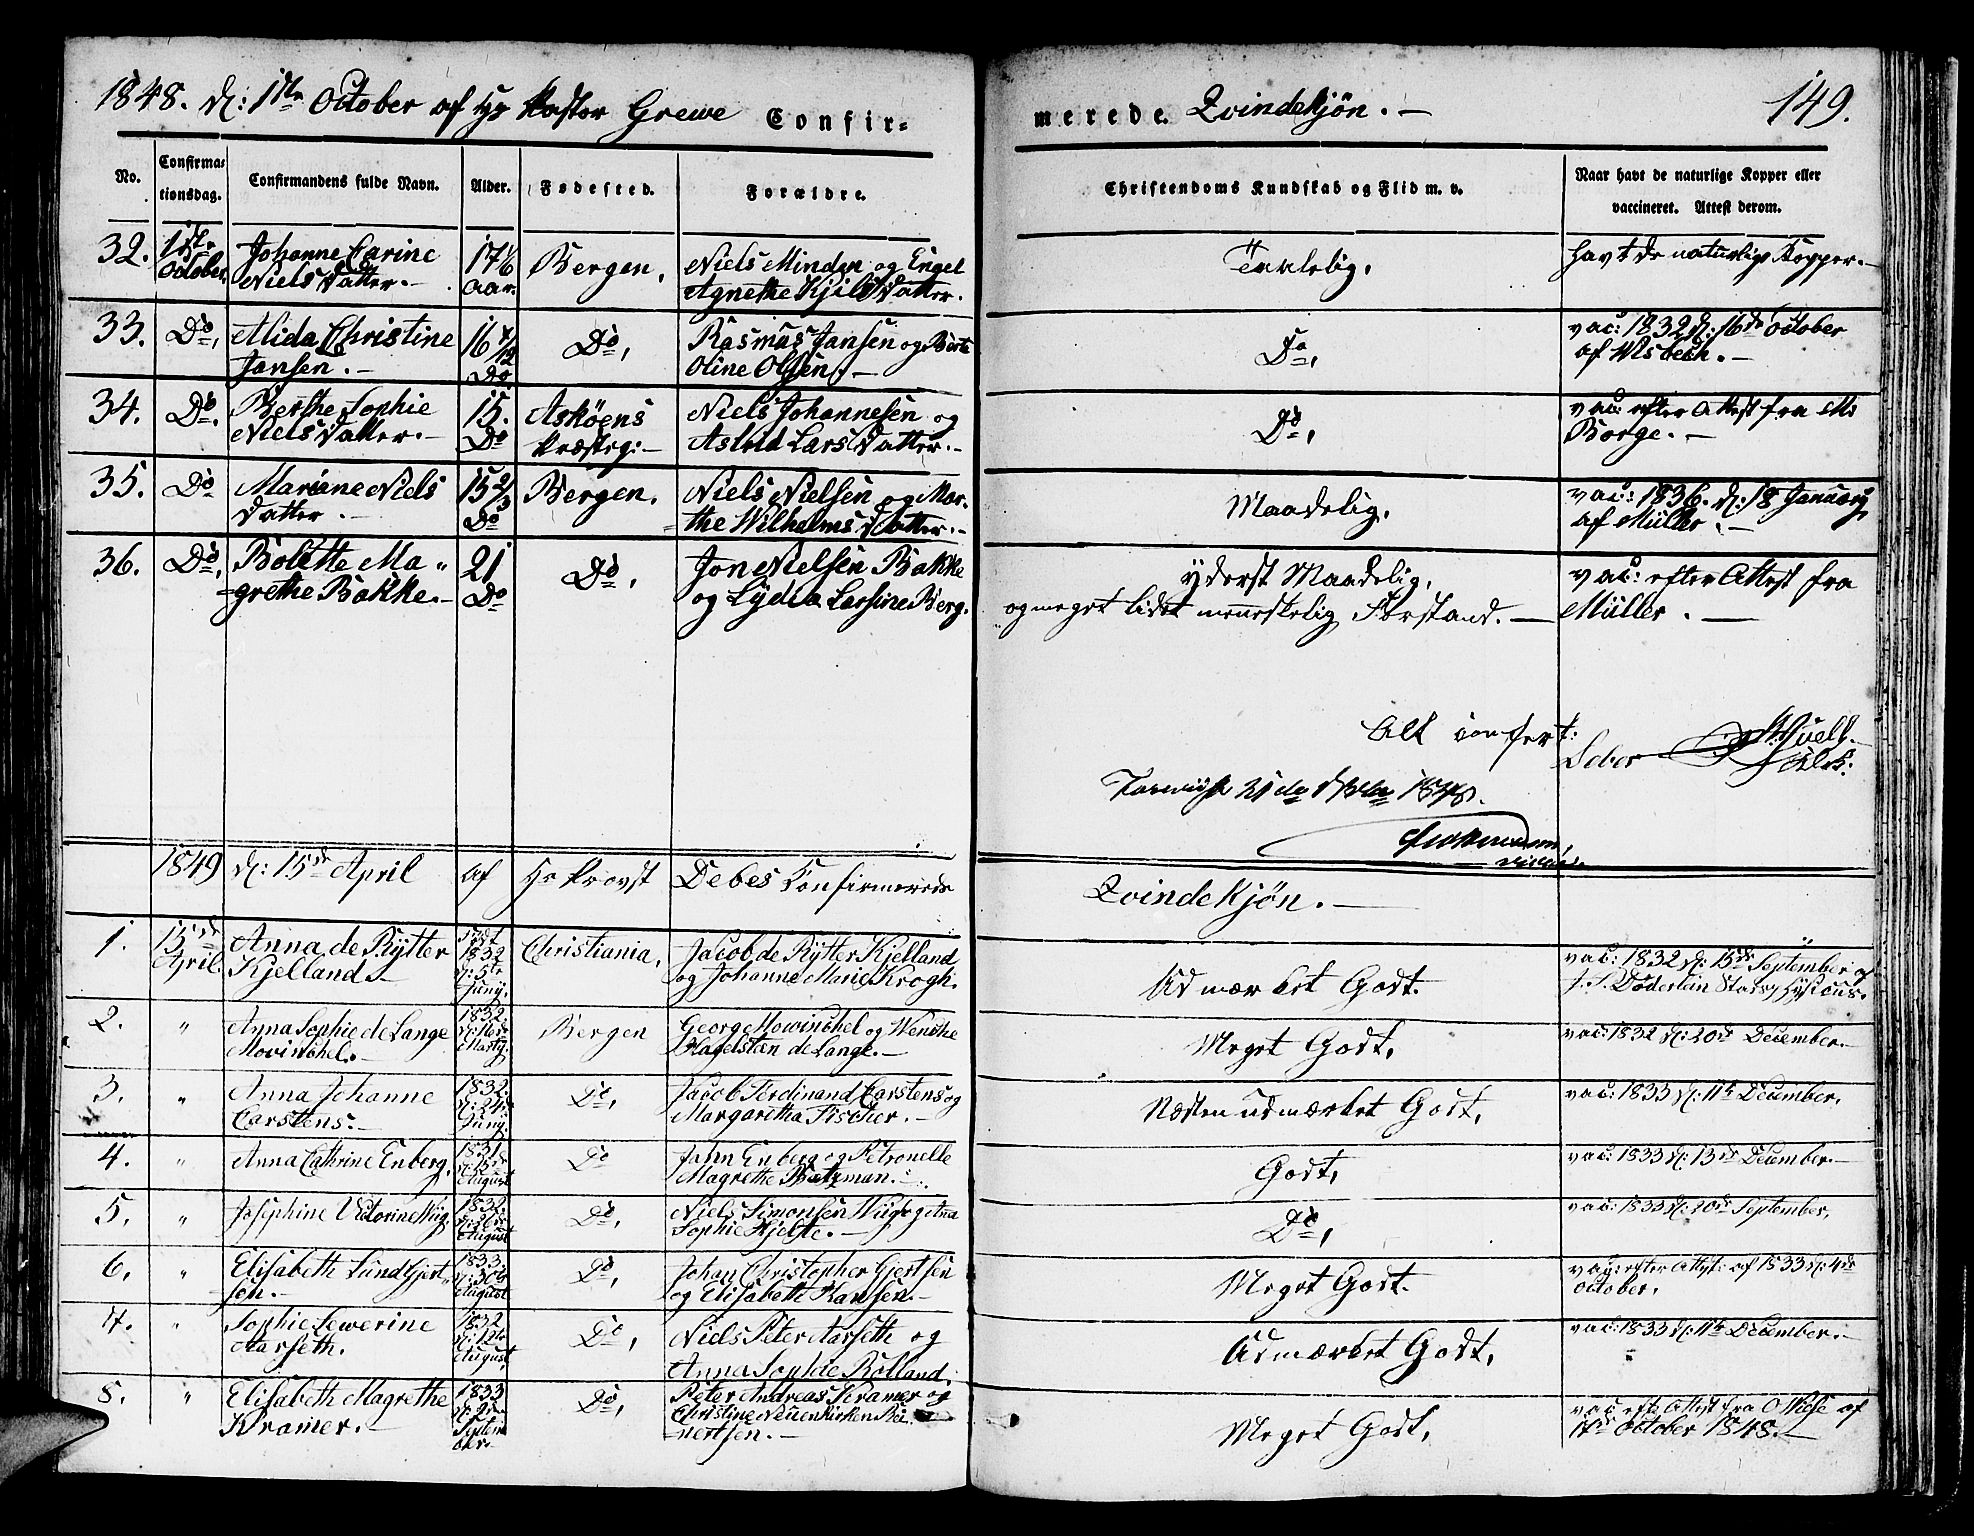 1848. d: 1ste October af Hr Pastor Grewe Confir=
merede. Qvindekjøn. — 149.
No. Confirma= Confirmandens fulde Navn. Alder. Fødested. Forældre. Christendoms Kundskab og Flid m. v. Naar havt de naturlige Kopper eller
tionsdag. vaccineret. Attest derom.
32. 1ste Johanne Carine 17 1/6 Bergen, Niels Minden og Engel Taalelig, havt de naturlige Kopper. —
October Niels Datter. — aar. Agnethe Kjils Datter.
33. Do, Alida Christine 16 7/12 Do, Rasmus Jansen og Berte Do, vac: 1832 d: 16de October
Jansen. — Do Oline Olsen. — af Wisbech. —
34. Do. Berthe Sophie 15. Askøens Niels Johannesen og Do, vac: efter Attest fra M:
Niels Datter. — Do Præsteg: — Astrid Lars Datter. — Borge. —
35. Do Mariane Niels 15 2/3 Bergen. Niels Nielsen og Mar- Maadelig, vac: 1836. d: 18 January
Datter. — Do the Wilhelms Datter. — af Müller. —
36. Do, Bolette Ma= 21 Do, Jon Nielsen Bakke yderst Maadelig, vac: efter Attest fra
grethe Bakke. — Do og Lydia Lassine Berg. og meget lidet menneskelig Forstand. — Müller. —
Alt confert:
Deber
Klok:
1848.
1849 d: 15de April af Hr Provst Debes Confirmerede Qvindekjøn. —
1. 15de Anna de Rytter født 1832 Christiania, Jacob de Rytter Kjelland Udmærket Godt. vac: 1832 d: 15de September af
April. Kjelland. d: 5te Juny. og Johanne Marie Krogh. J. S. Döderlein Stadsphysicus.
2. " Anna Sophie de Lange 1832. Bergen George Mowinchel og Wenche Meget Godt, vac: 1832 d: 20de December. —
Movinchel. — Marty. Hagelsteen de Lange. —
3. " Anna Johanne 1832. Do, Jacob Ferdinand Carstens og Næsten udmærket Godt, vac: 1833 d: 11te December.
Carstens. — d: 24de Juny. Margaretha Fischer. —
4. " Anna Cathrine Enberg, 1831. Do Jahn Enberg og Petronelle Godt, vac: 1833 d: 13de December. —
d: 15de August Magrethe Batzman. —
5. " Josephine Victorine Wiig 1832. Do, Niels Simonsen Wiig og Do, vac: 1833 d: 20de September,
August Sophie Hjelte. —
6. " Elisabeth Lund Gjert= 1833. Do, Johan Christopher Gjertsen Meget Godt. vac: efter Attest: af 1833 d: 4de
sen. — d: 30te August og Elisabeth Hansen. — October.
7. " Sophie Sewerine 1832 Do, Niels Peter Aarseth og Udmærket Godt, vac: 1833 d: 11te December. —
Aarseth. d: 12te August, Anna Sophie Rolland.
8. " Elisabeth Magrethe 1833 Do, Peter Andreas Kramer og Meget Godt,
Kramer. — Septem ber. Christine October 1848. —